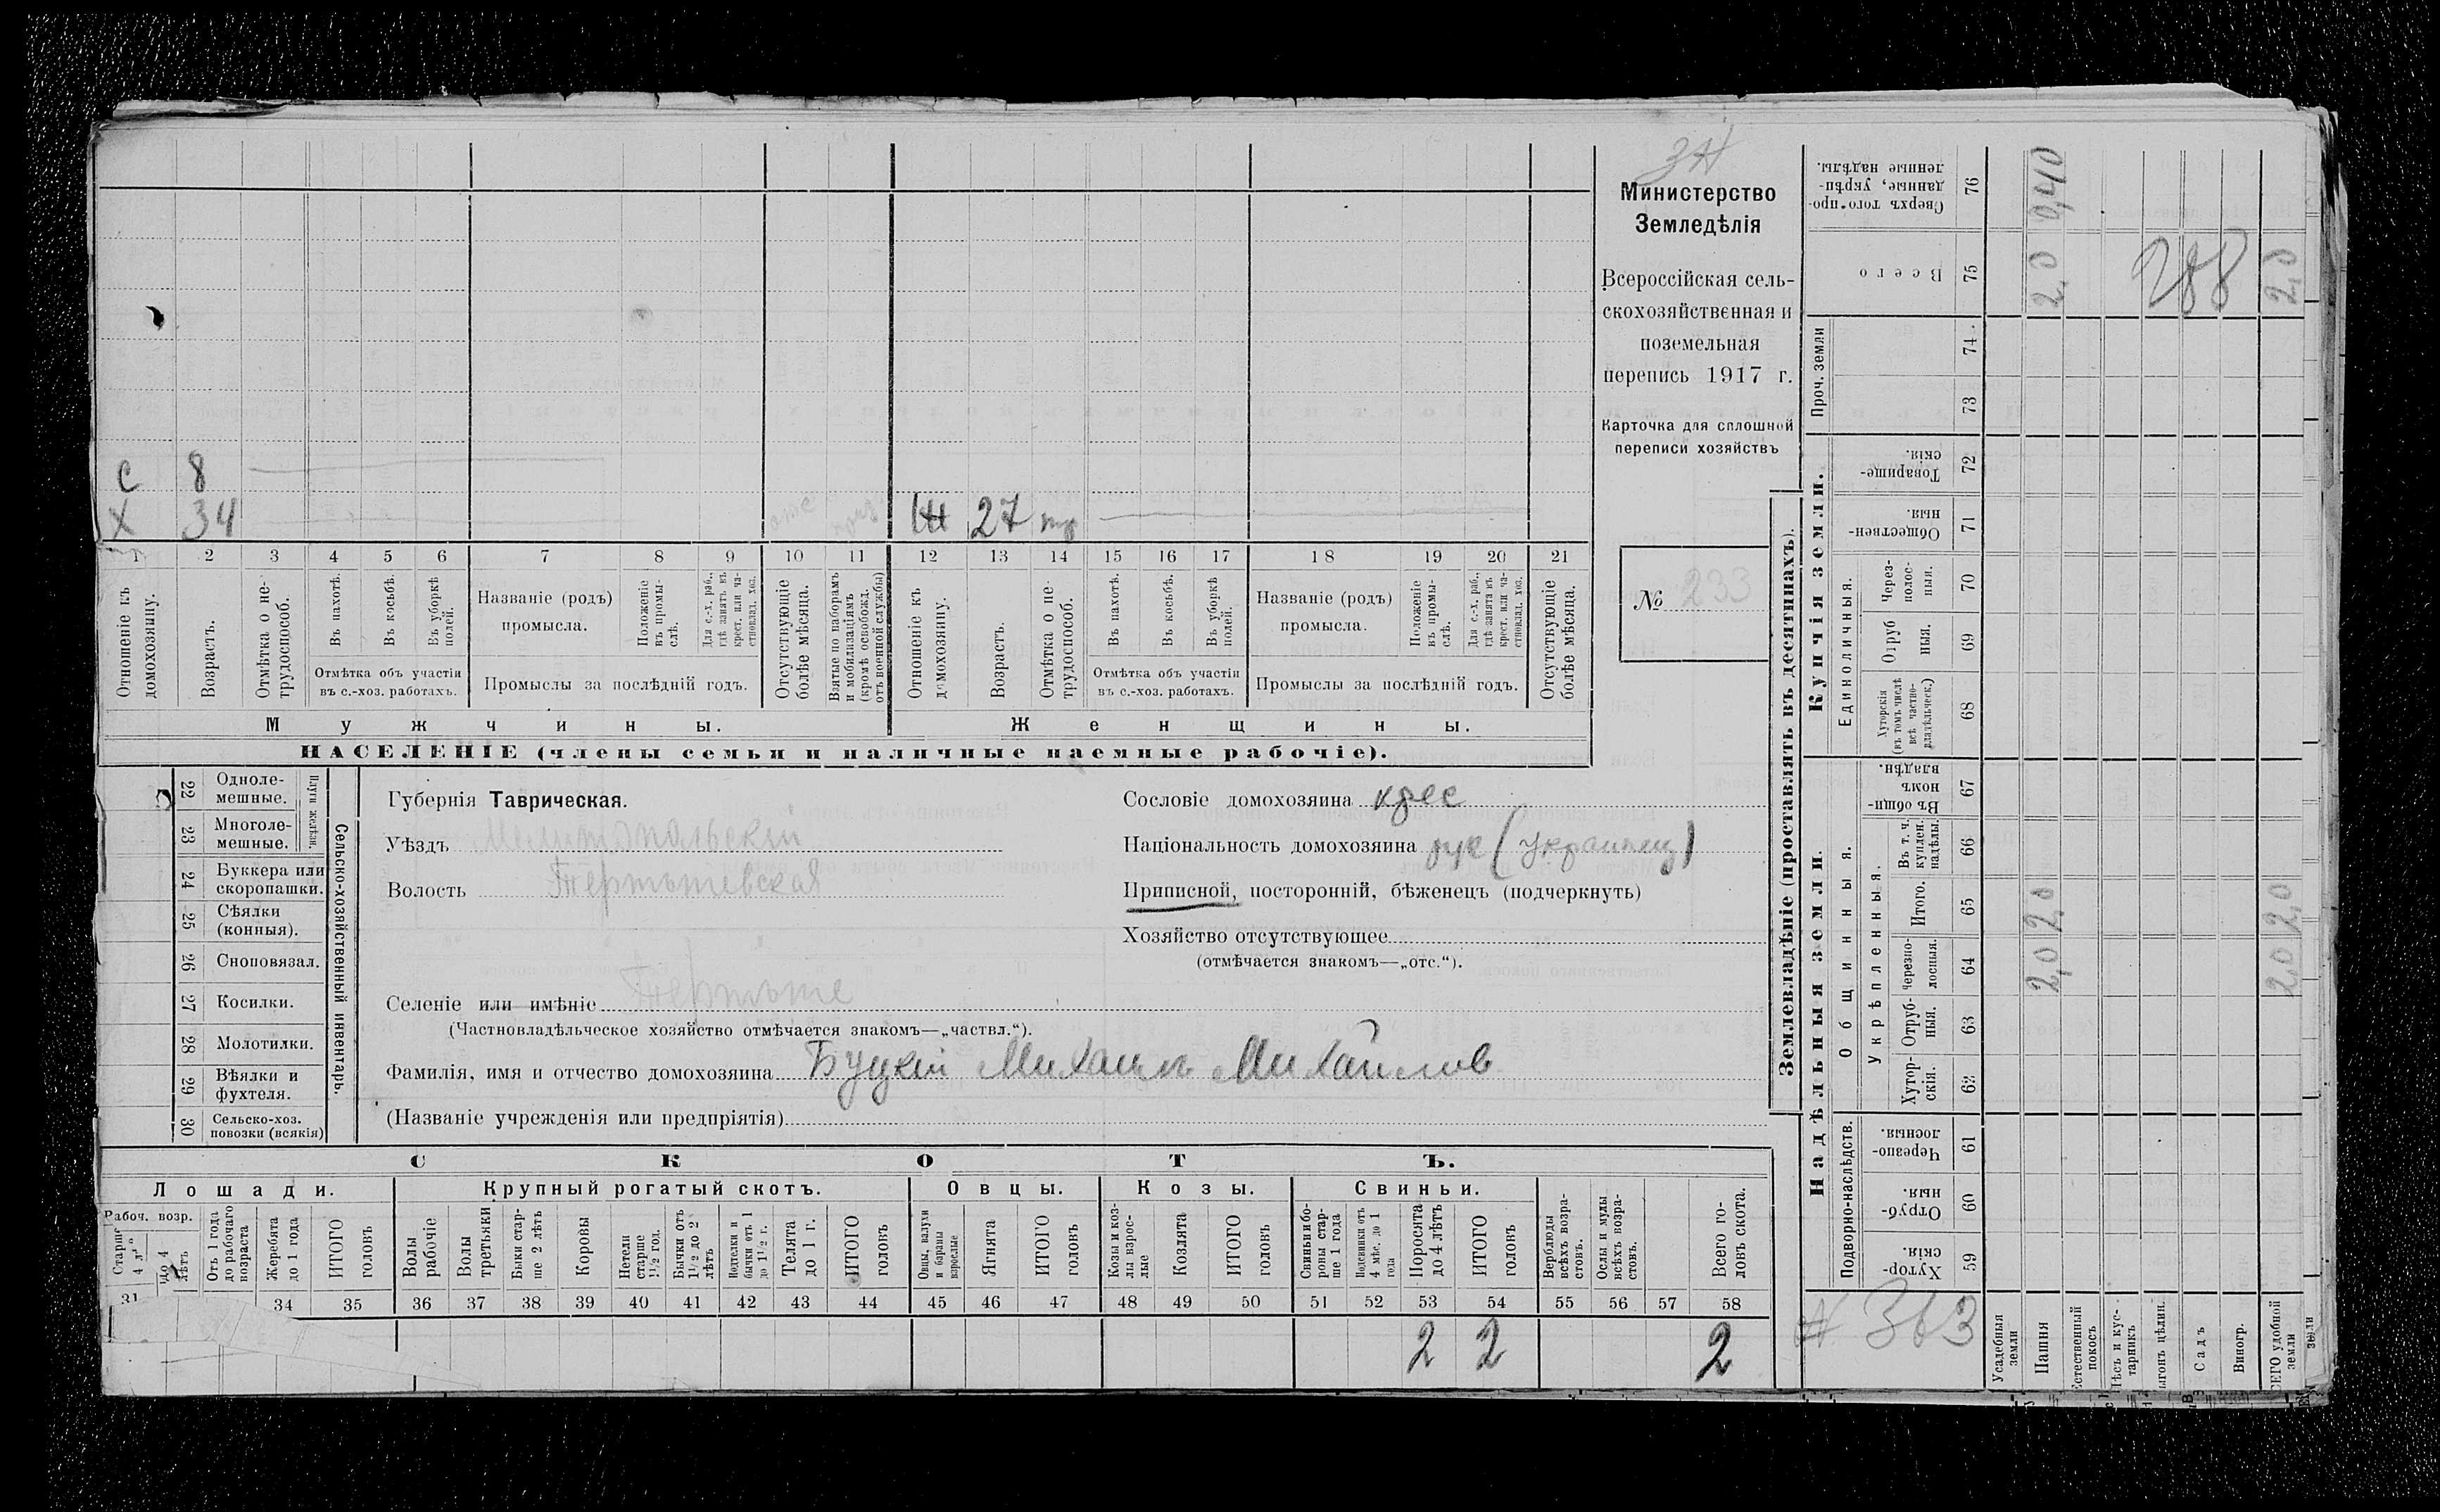 ЗН
Министерство
Земледѣлія
Всероссійская сель-
скохозяйственная и
поземельная
перепись 1917 г.
Карточка для сплошной
переписи хозяйствъ
№ 233
С 8
Х 34
Ж 27 тр
1 2 3 4 5 6 7 8 9 10 11 12 13 14 15 16 17 18 19 20 21
Отношеніе къ
домохозяину.
Возрастъ.
Отмѣтка о не-
трудоспособ.
Въ пахотѣ.
Въ косьбѣ.
Въ уборкѣ
полей.
Отмѣтка объ участіи
въ с.-хоз. работахъ.
Названіе (родъ)
промысла.
Положеніе
въ промы-
слѣ.
Для с.-х. раб.,
гдѣ занятъ въ
крест. или ча-
стновлад. хоз.
Промыслы за послѣдній годъ.
Отсутствующіе
болѣе мѣсяца.
Взятые по наборамъ
и мобилизаціямъ
(кромѣ освобожд.
отъ военной службы)
Отношеніе къ
домохозяину.
Возрастъ.
Отмѣтка о не
трудоспособ.
Въ пахотѣ.
Въ косьбѣ.
Въ уборкѣ
полей.
Отмѣтка объ участіи
въ с.-хоз. работахъ.
Названіе (родъ)
промысла.
Положеніе
въ промы-
слѣ.
Для с.-х. раб.,
гдѣ занята въ
крест. или ча-
стновлад. хоз.
Промыслы за послѣдній годъ.
Отсутствующіе
болѣе мѣсяца.
Мужчины.
Женщины.
НАСЕЛЕНІЕ (члены семьи и наличные наемные рабочіе).
Сельско-хозяйственный инвентарь.
Плуги желѣзн.
22 Одноле-
мешные.
23 Многоле-
мешные.
24 Буккера или
скоропашки.
25 Сѣялки
(конныя).
26 Сноповязал.
27 Косилки.
28 Молотилки.
29 Вѣялки и
фухтеля.
30 Сельско-хоз.
повозки (всякія)
Губернія Таврическая.
Уѣздъ Мелитопольскій
Волость Терпѣніевская
Селеніе или имѣніе Терпѣніе
(Частновладѣльческое хозяйство отмѣчается знакомъ—„частвл.“).
Фамилія, имя и отчество домохозяина Буцкій Михаилъ Михайлов
(Названіе учрежденія или предпріятія)
Сословіе домохозяина крес
Національность домохозяина рус (украинец)
Приписной, посторонній, бѣженецъ (подчеркнуть)
Хозяйство отсутствующее
(отмѣчается знакомъ—„отс.“).
СКОТЪ.
Лошади.
Крупный рогатый скотъ.
Овцы.
Козы.
Свиньи.
Рабоч. возр.
Старше
4 лѣтъ
до 4
лѣтъ
Отъ 1 года
до рабочаго
возраста
Жеребята
до 1 года
ИТОГО
головъ
Волы
рабочіе
Волы
третьяки
Быки стар-
ше 2 лѣтъ
Коровы
Нетели
старше
1½ год.
Бычки отъ
1½ до 2
лѣтъ
Подтелки и
бычки отъ 1
до 1½ г.
Телята
до 1 г.
ИТОГО
головъ
Овцы, валухи
и бараны
взрослые
Ягнята
ИТОГО
головъ
Козы и коз-
лы взрос-
лые
Козлята
ИТОГО
головъ
Свиньи и бо-
роны стар-
ше 1 года
Подсвинки отъ
4 мѣс. до 1
года
Поросята
до 4 лѣтъ
ИТОГО
головъ
Верблюды
всѣхъ возра-
стовъ.
Ослы и мулы
всѣхъ возра-
стовъ.
Всего го-
ловъ скота.
31 34 35 36 37 38 39 40 41 42 43 44 45 46 47 48 49 50 51 52 53 54 55 56 57 58
2 2 2
Землевладѣніе (проставлять въ десятинахъ).
Надѣльныя земли.
Купчія земли.
Проч. земли
Подворно-наслѣдств.
Общинныя.
Укрѣпленныя.
Единоличныя.
Сверхъ того про-
данные, укрѣп-
ленные надѣлы.
76
Всего
75
74
73
Товарище-
скія.
72
Обществен-
ныя.
71
Через-
полос-
ныя.
70
Отруб
ныя.
69
Хуторскія
(въ томъ числѣ
всѣ частно-
владѣльческ.)
68
Въ общин-
номъ
владѣн.
67
Въ т. ч.
куплен.
надѣлы.
66
Итого.
65
Черезпо-
лосныя.
64
Отруб-
ныя.
63
Хутор-
скія.
62
Черезпо-
лосныя.
61
Отруб-
ныя.
60
Хутор-
скія.
59
Усадебныя
земли
Пашня
Естественный
покосъ
Лѣсъ и кус-
тарникъ
Садъ
Виногр.
ВСЕГО удобной
земли
2,0 2,0 2,0 0,40
288
2,0 2,0 2,0
№ 363